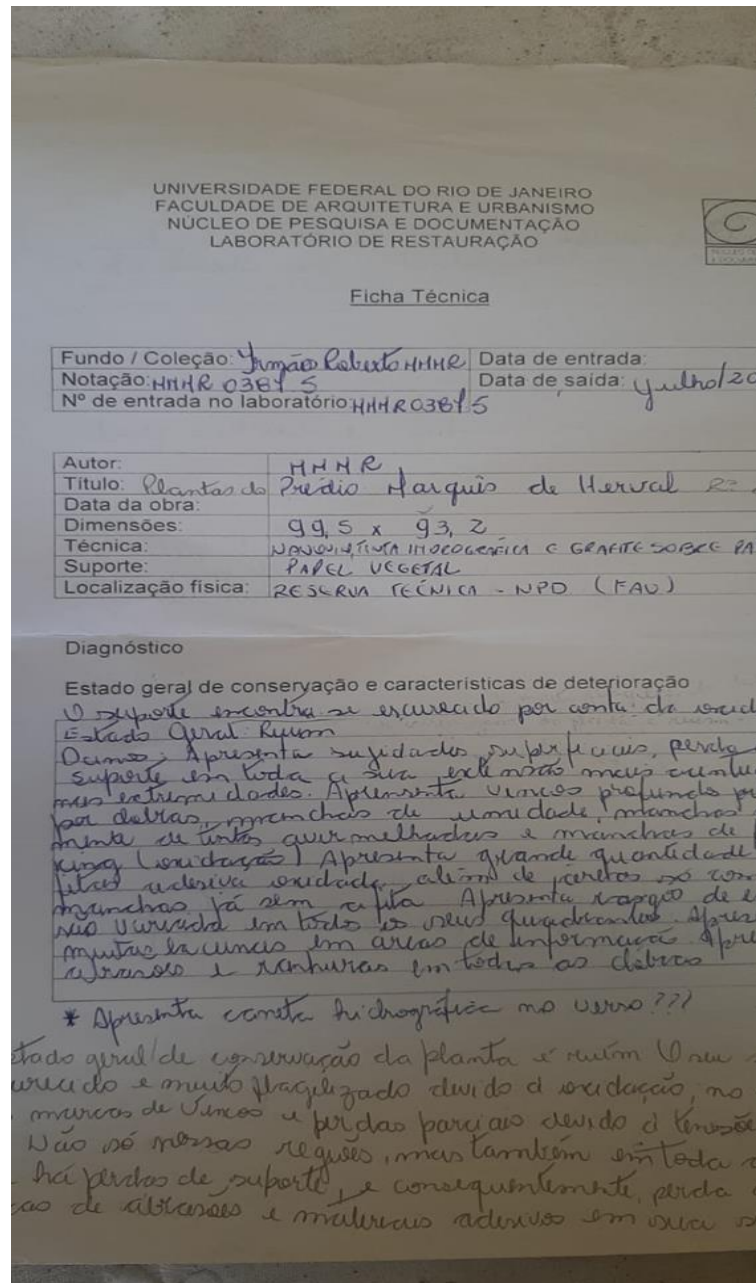 UNIVERSIDADE FEDERAL DO RIO DE JANEIRO
FACULDADE DE ARQUITETURA E URBANISMO
NÚCLEO DE PESQUISA E DOCUMENTAÇÃO
LABORATÓRIO DE RESTAURAÇÃO
Ficha Técnica
Fundo / Coleção: Irmãos Roberto MMMR Data de entrada:
Notação: MMMR 038 5 Data de saída: julho/20
Nº de entrada no laboratório MMMR038 5
Autor: MMMR
Título: Plantas do Prédio Marquis de Herval
Data da obra:
Dimensões: 99,5 x 93,2
Técnica: NANQUIM, TINTA E GRAFITE SOBRE PA
Suporte: PAPEL VEGETAL
Localização física: RESERVA TÉCNICA - NPD (FAU)
Diagnóstico
Estado geral de conservação e características de deterioração
O suporte encontra se escurecido por conta da oxid
Estado Geral: Ruim
Danos: Apresenta sujidades superficiais, perda
suporte em toda a sua extensão mais
nas extremidades. Apresenta vincos profundo
por dobras, manchas de umidade, manchas
de tintas avermelhadas e manchas de
king (oxidação) Apresenta grande quantidade
fitas adesiva oxidada, além de só com
manchas já sem a fita Apresenta rasgo de e
são variada em todo os seus quadrantes. Apres
muitas lacunas em areas de informação. Apre
abrasões e ranhuras em todas as dobras
* Apresenta caneta hidrográfica no verso???
stado geral de conservação da planta é ruim O seu
urecido e muito fragilizado devido à oxidação, no
marcas de vincos e perdas parciais devido à tensõe
Não só nessas regiões, mas também em toda a
há perdas de suporte, e consequentemente, perda
de abrasões e materiais adesivos em sua s